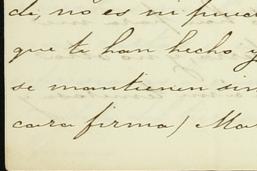 de, no es ni
que te han hecho y
se mantienen sin
cara firma) Ma